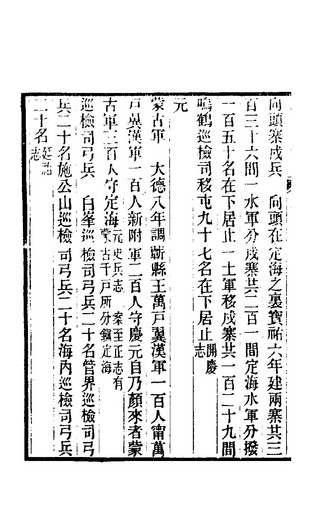 向頭寨戍兵　向頭在定海之裏寶祐六年建兩寨共三
百三十六間一水軍分戍寨共二百一間定海水軍分撥
一百五十名在下居止一土軍移戍寨共一百二十九間
鳴鶴巡檢司移屯九十七名在下居止開慶志
元
蒙古軍　大德八年調蘄縣王萬戸翼漢軍一百人甯萬
戸翼漢軍一百人新附軍二百人守慶元自乃顏來者蒙
古軍三百人守定海元史兵志　案至正志有蒙古千戸所分鎭定海
巡檢司弓兵　白峯巡檢司弓兵二十名管界巡檢司弓
兵二十名施公山巡檢司弓兵二十名海内巡檢司弓兵
二十名延祐志